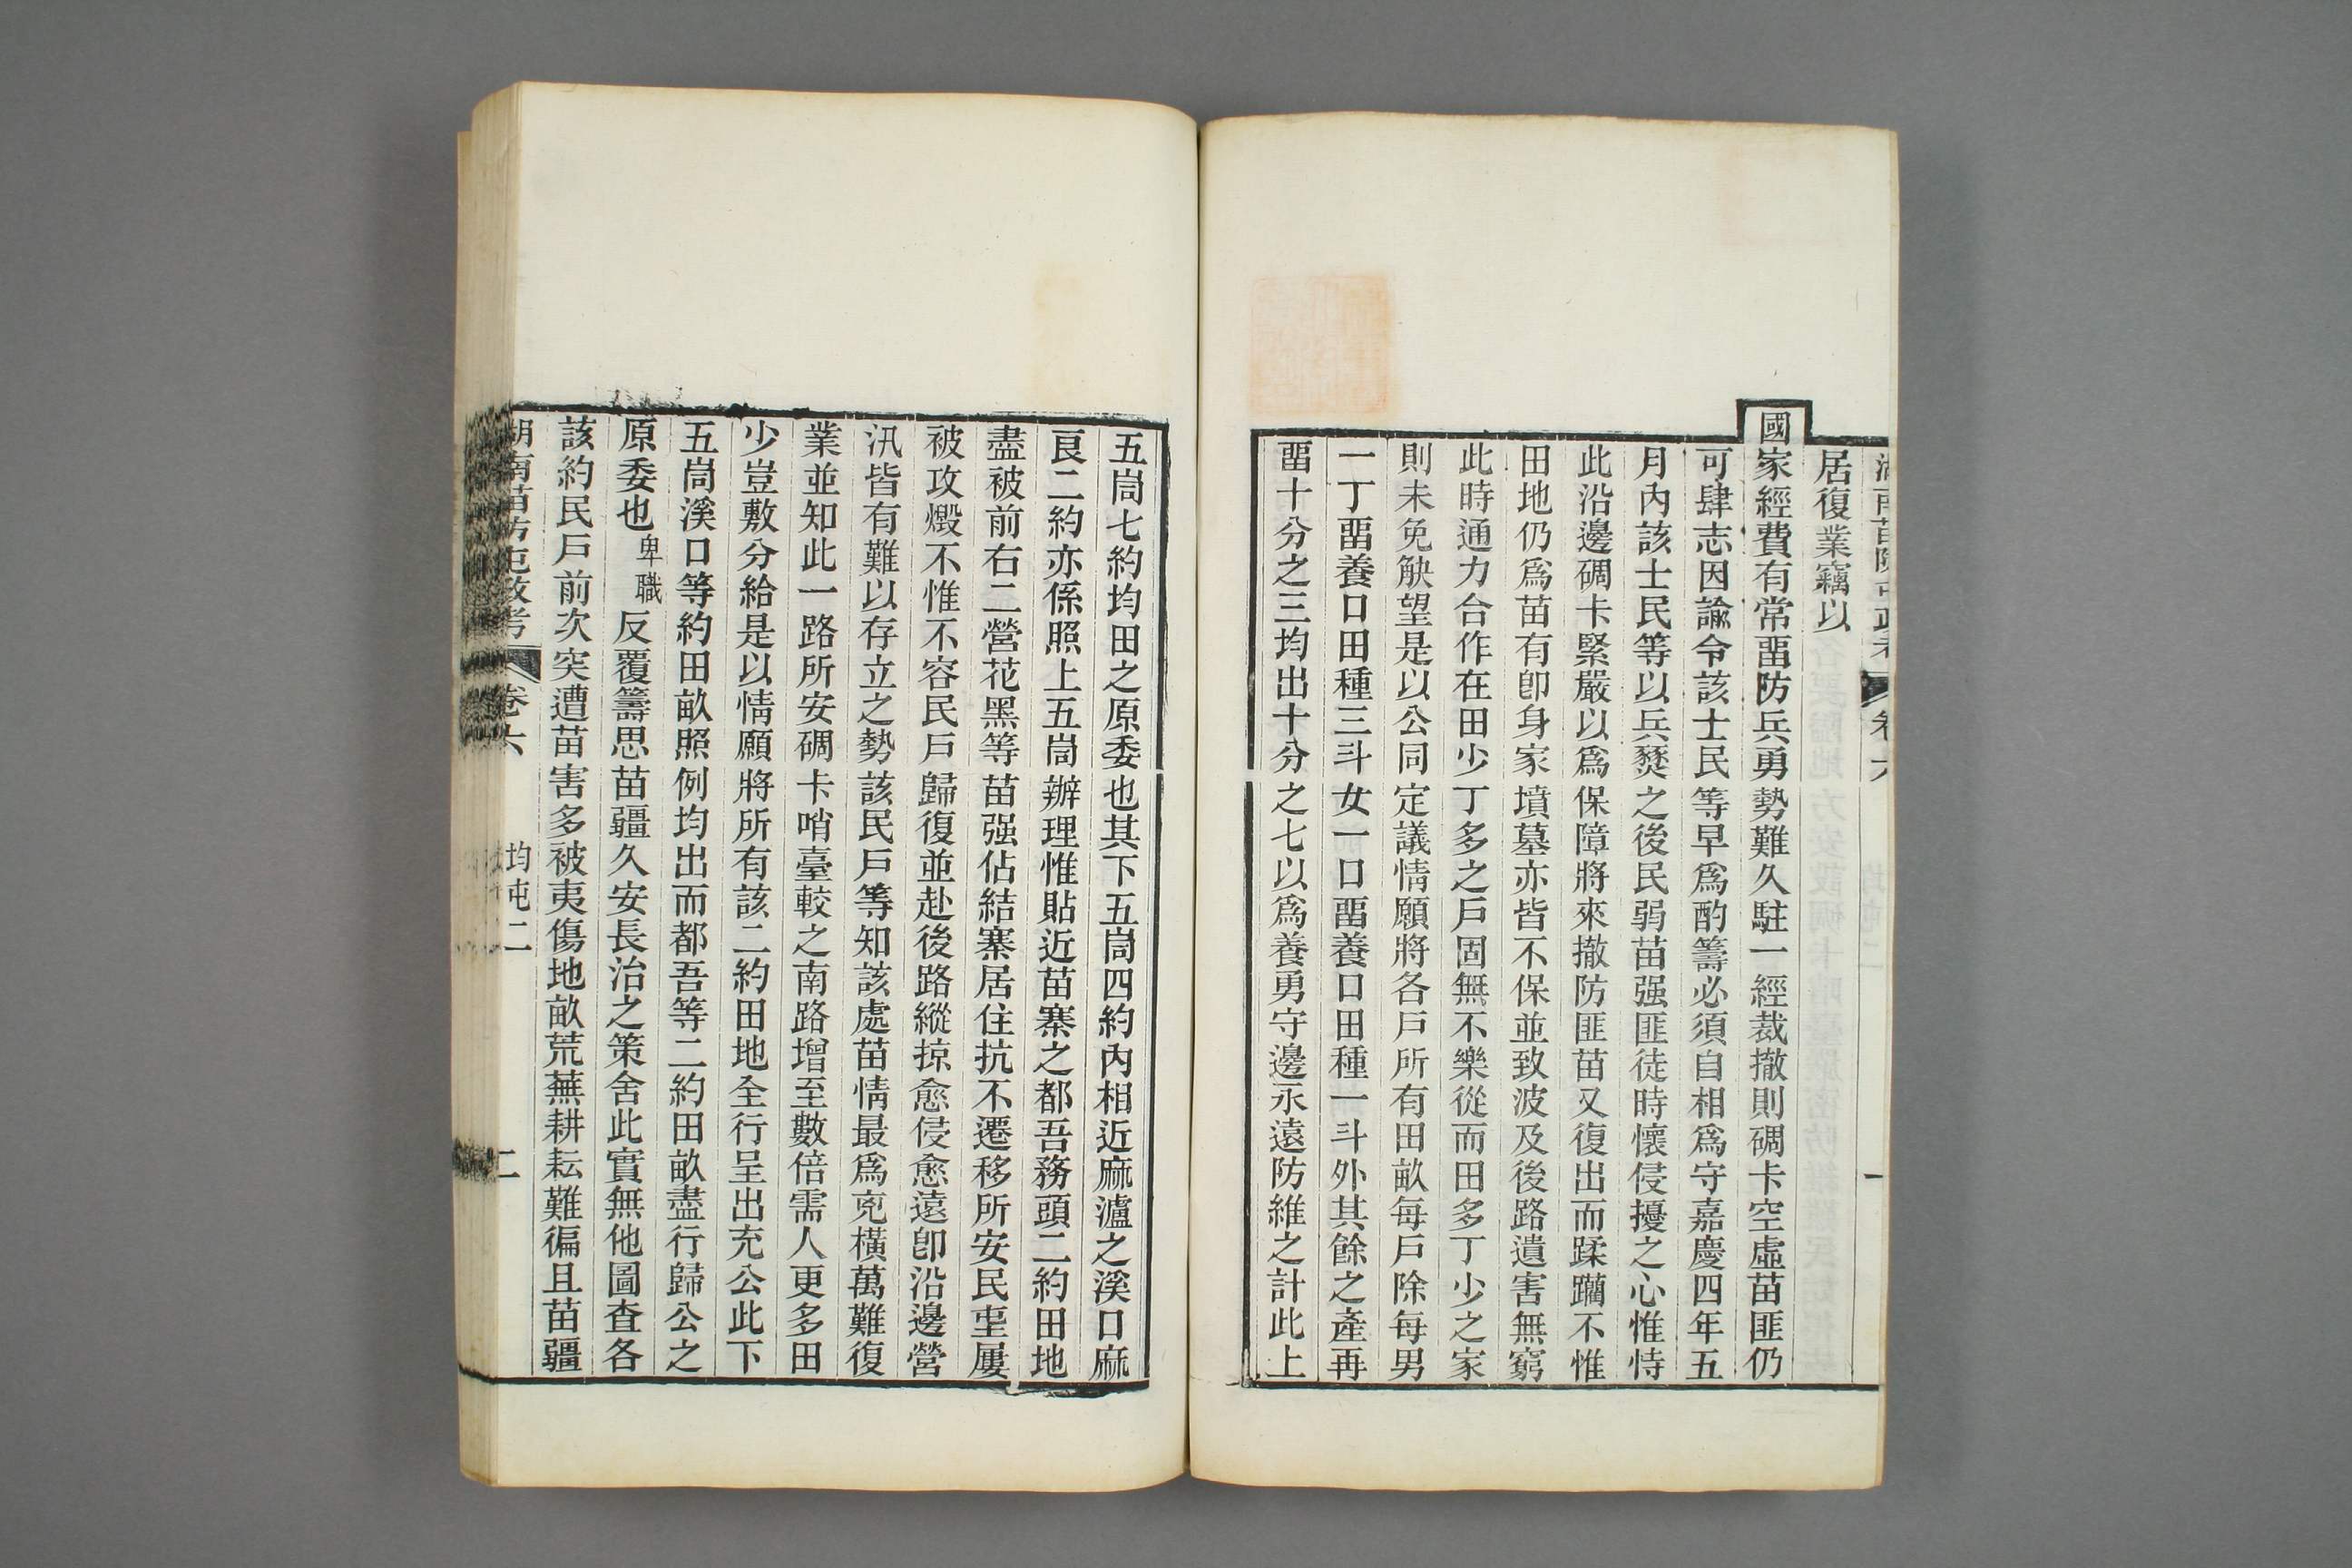 居復業竊以
國家經費有常畱防兵勇勢難久駐一經裁撤則碉卡空虛苗匪仍
可肆志因諭令該士民等早爲酌籌必須自相爲守嘉慶四年五
月內該士民等以兵燹之後民弱苗强匪徒時懷侵擾之心惟恃
此沿邊碉卡緊嚴以爲保障將來撤防匪苗又復出而蹂躪不惟
田地仍爲苗有卽身家墳墓亦皆不保並致波及後路遺害無窮
此時通力合作在田少丁多之戶固無不樂從而田多丁少之家
則未免觖望是以公同定議情願將各戶所有田畝每戶除每男
一丁畱養口田種三斗女一口畱養口田種一斗外其餘之產再
畱十分之三均出十分之七以爲養勇守邊永遠防維之計此上
五崗七約均田之原委也其下五崗四約內相近麻瀘之溪口麻
良二約亦係照上五崗辦理惟貼近苗寨之都吾務頭二約田地
盡被前右二營花黑等苗强佔結寨居住抗不遷移所安民𡉏屢
被攻燬不惟不容民戶歸復並赴後路縱掠愈侵愈遠卽沿邊營
汛皆有難以存立之勢該民戶等知該處苗情最爲兇橫萬難復
業並知此一路所安碉卡哨臺較之南路增至數倍需人更多田
少豈敷分給是以情願將所有該二約田地全行呈出充公此下
五崗溪口等約田畝照例均出而都吾等二約田畝盡行歸公之
原委也卑職反覆籌思苗疆久安長治之策舍此實無他圖查各
該約民戶前次突遭苗害多被夷傷地畝荒蕪耕耘難徧且苗疆
湖南苗防屯政考 卷六 均屯二 二